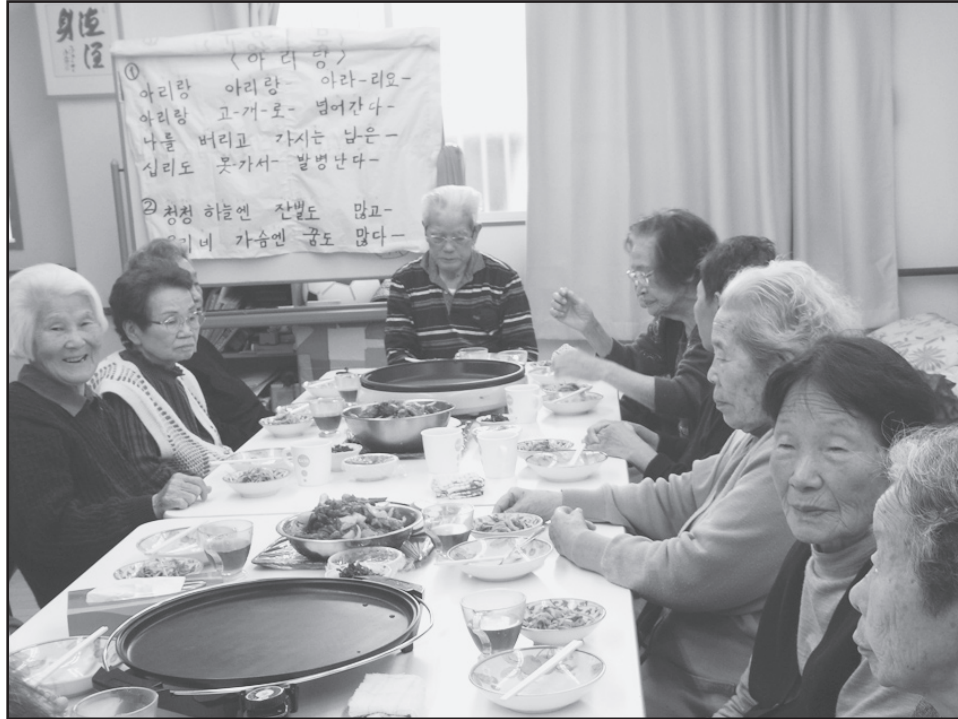 <아리랑>
① 아리랑 아리랑- 아라-리요-
아리랑 고-개-로- 넘어간다-
나를 버리고 가시는 님-은-
십리도 못-가서- 발병난다-
② 청청 하늘엔 잔별도 많고-
네 가슴엔 꿈도 많다-